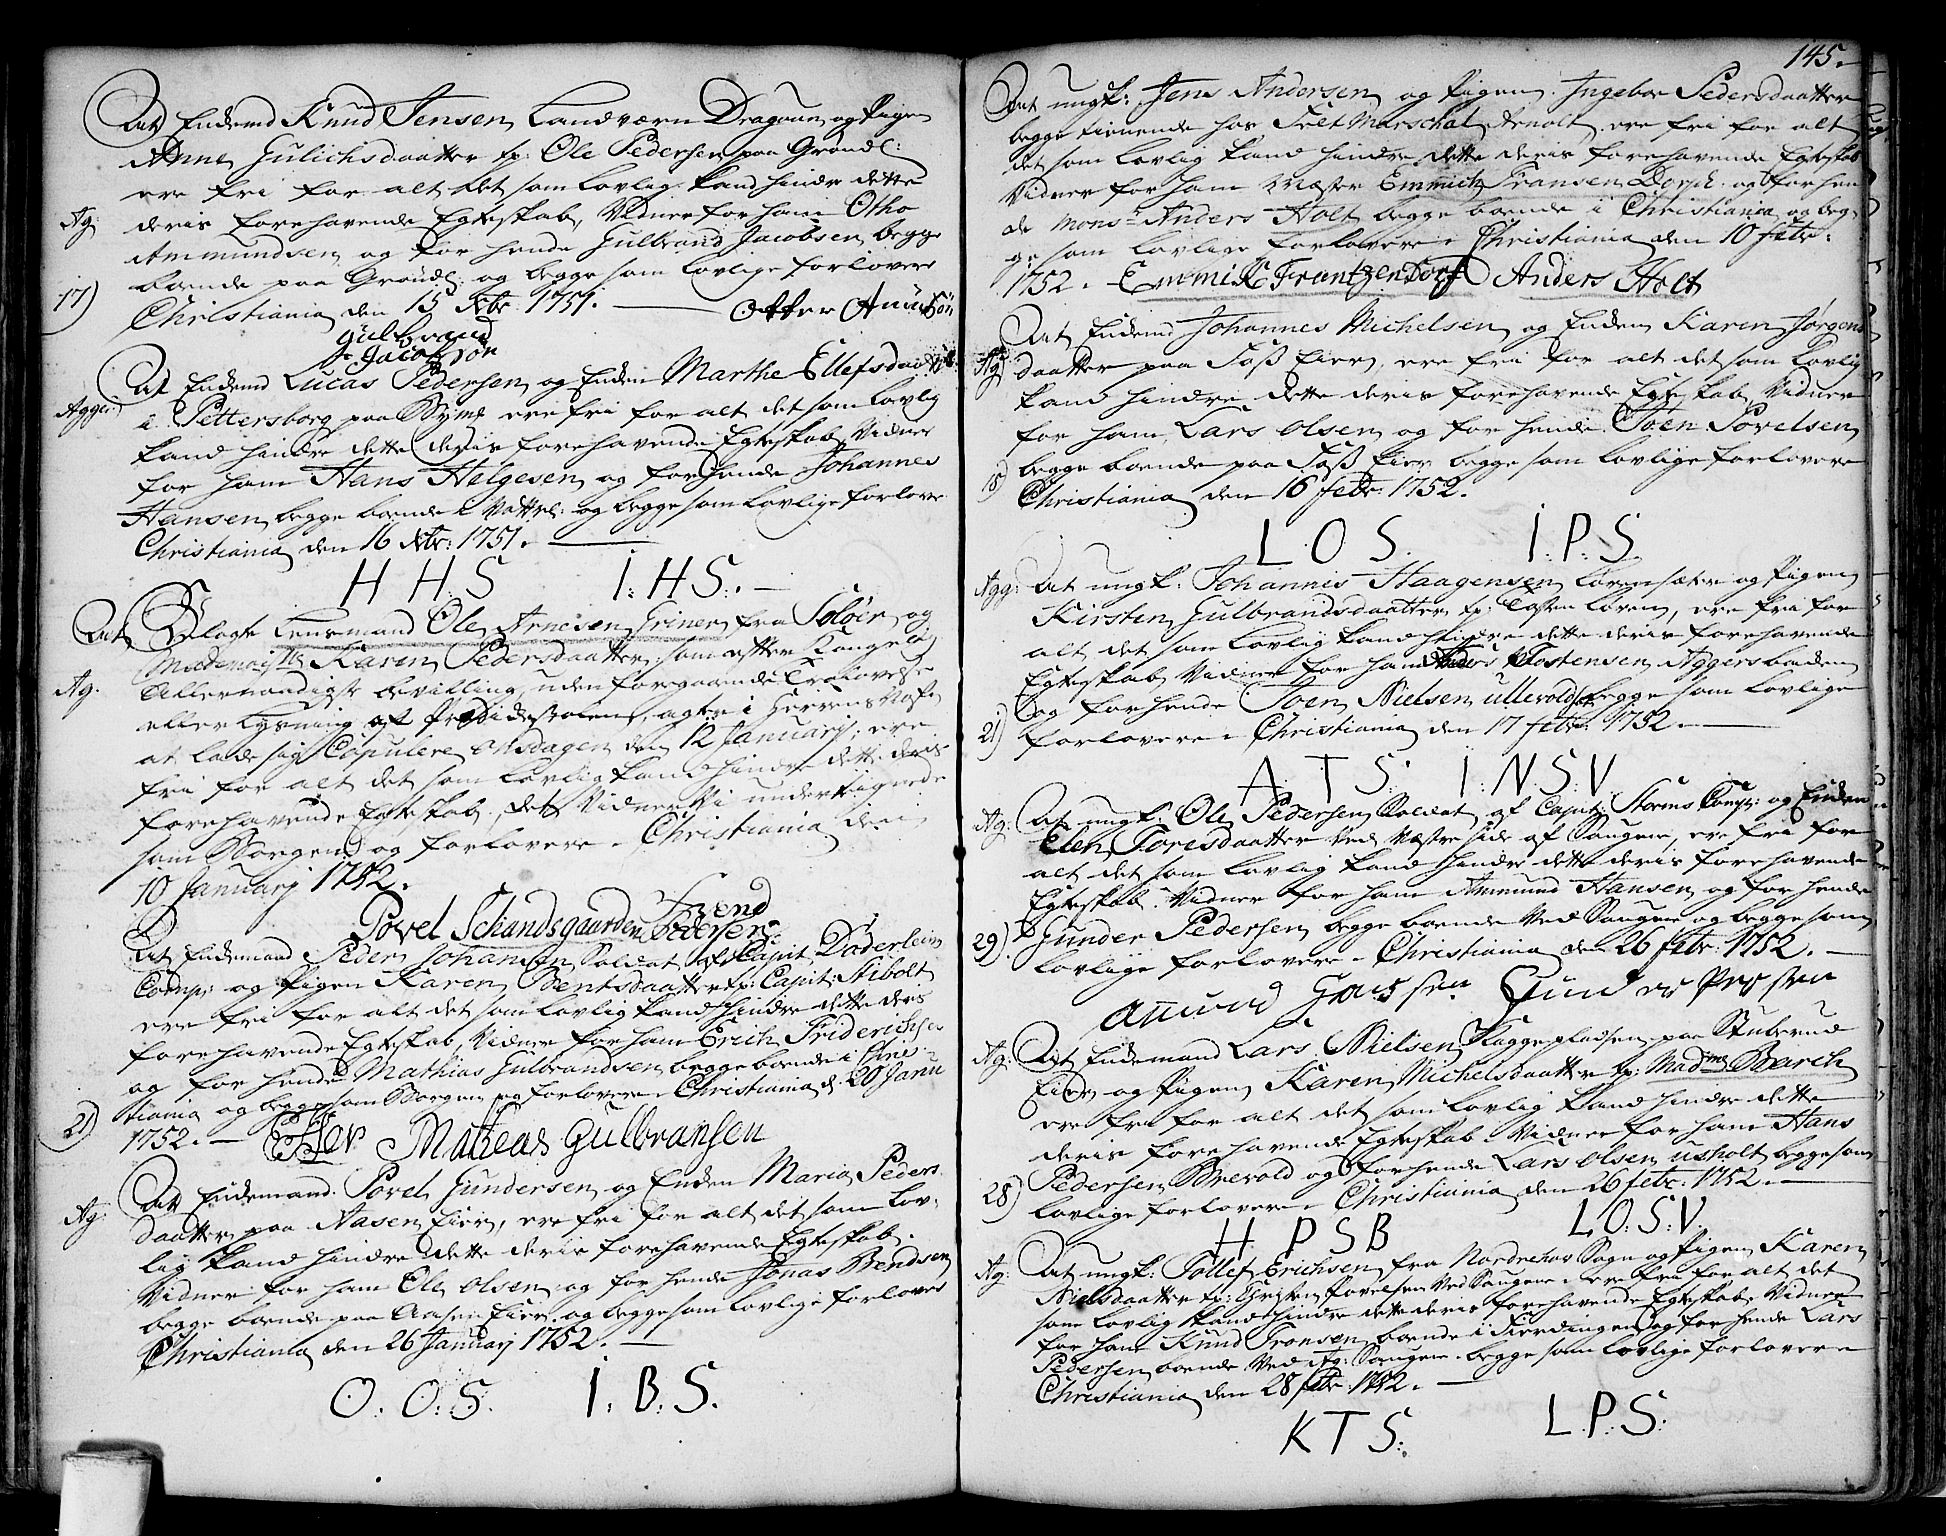 At Enkemd Knud Jensen Landværn Dragoun og Pigen
Anne Gulichsdaatter tp: Ole Pedersen paa Grøndl:
ere fri for alt det som lovlig kand hindre dette
Ag: deris forehavende Egteskab, Vidner for ham Otho
Ammundsen og for hende Gulbrand Jacobsen begge
boende paa Grøndl: og begge som lovlige forlovere
17) Christiania den 15 xbr: 1751. Otter
Gulbrand
Jacobsøn
At Enkemd Lucas Pedersen og Enken Marthe Ellefsdaatter
Agger: i Pettersborg paa Bymk ere fri for alt det som lovlig
kand hindre dette deris forehavende Egteskab, Vidner
for ham Hans Helgesen og for hende Johannes
Hansen begge boende i Vattrl: og begge som lovlige forlovere
Christiania den 16 xbr: 1751.
H H S I: H S:
At Velagte Lensmand Ole Arnesen Griner fra Soløer og
Mademoiselle Karen Pedersdaatter, som efter Kongelig
Ag. Allernaadigste Bevilling, uden foregaaende Trolovelse
eller Lysning af Prædickestolen, agter i Herrens Nafn
at lade sig Copulere Onsdagen den 12 Januarij, ere
fri for alt det som lovlig kand hindre dette deris
forehavende Egteskab, det Vidner Vi undertegnede
som Borgen og forlovere. Christiania den
10 Januarj 1752.
Povel Schandsgaarden Svend
Pedersen
At Enkemand Peder Johansen Soldat af Capit: Döderleins
Comp: og Pigen Karen Bentsdaatter tp: Capit: Stibolt
ere fri for alt det som lovlig kand hindre dette deris
forehavende Egteskab, Vidner for ham Erich Friderichsen
og for hende Mathias Gulbrandsen begge boende i Chris-
tiania og begge som Borgen og forlovere. Christiania d. 20 Janu
2) 1752. Matheas Gulbransen
At Enkemand Povel Gundersen og Enken Maria Peders
Ag: daatter paa Aasen Eier, ere fri for alt det som lov-
lig kand hindre dette deris forehavende Egteskab.
Vidner for ham Ole Olsen og for hende Jonas Bendsen
begge boende paa Aasen Eier og begge som lovlige forlovere
Christiania den 26 Januarj 1752.
O. O. S. I. B. S.
145.
At ungk: Jens Andersen og Pigen Ingebor Pedersdaatter
begge tienende hos Felt Marschal Arnolt, ere fri for alt
det som lovlig kand hindre dette deris forehavende Egteskab
Vidner for ham Mæster Emmich Fransen Dorph og for hen
de Monsr Anders Holt begge boende i Christiania og beg-
ge som lovlige forlovere. Christiania den 10 febr:
1752. Emmik Frantzen Dorf Anders Holt
At Enkemd Johannes Michelsen og Enken Karen Jørgens
Ag: daatter paa Foss Eier, ere fri for alt det som lovlig
kand hindre dette deris forehavende Egteskab, Vidner
for ham Lars Olsen og for hende Joen Povelsen
begge boende paa Foss Eier begge som lovlige forlovere
Christiania den 16 febr: 1752.
L O S. I: P: S
Agg: At ungk: Johannis Haagensen Lørensæter og Pigen
Kirsten Gulbrandsdaatter tp: Tosten Løren, ere fri for
alt det som lovlig kand hindre dette deris forehavende
Egteskab, Vidner for ham Anders Tostensen Aggersbaden
og for hende Joen Nielsen Ullevold begge som lovlige
21) forlovere. Christiania den 17 febr: 1752.
A: T S: I: N. S: V
Ag: At ungk: Ole Pedersen Soldat af Capit: Storms Comp: og Enken
Elen Toresdaatter Ved Væstre side af Saugene, ere fri for
alt det som lovlig kand hindre dette deris forehavende
Egteskab. Vidner for ham Ammund Hansen og for hende
29) Gunder Pedersen begge boende Ved Saugene og begge som
lovlige forlovere. Christiania den 26 febr: 1752.
Gunder
Ag: At Enkemand Lars Nielsen Kaggepladsen paa Stuberud
Eier og Pigen Karen Michelsdaatter tp: Madme Barth
ere fri for alt det som lovlig kand hindre dette
deris forehavende Egteskab. Vidner for ham Hans
Pedersen Brevold og for hende Lars Olsen Usholt begge som
28) lovlige forlovere. Christiania den 26 febr: 1752.
H P S B L: O: S: V.
Ag: At ungk: Tollef Erichsen fra Nordrehov Sogn og Pigen Karen
Nielsdaatter tp: Christen Povelsen Ved Saugene ere fri for alt det
som lovlig kand hindre dette deris forehavende Egteskab. Vidner
for ham Knud Tronsen boende i Fierdingen og for hende Lars
Pedersen boende Ved Ag: Saugene. begge som lovlige forlovere
Christiania den 28 febr: 1752.
K T S: L. P: S: